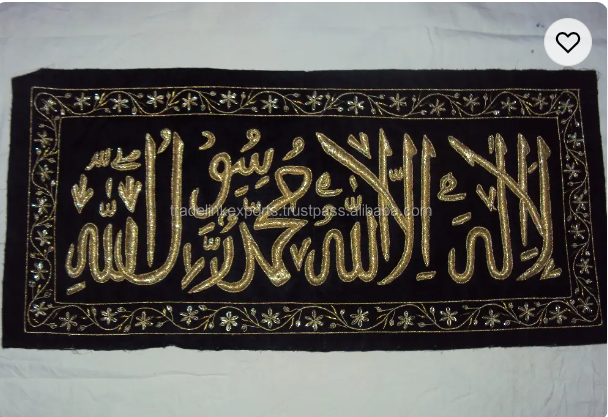 لا إله إلا الله محمد رسول الله
tradelinkexperts.trustpass.alibaba.com